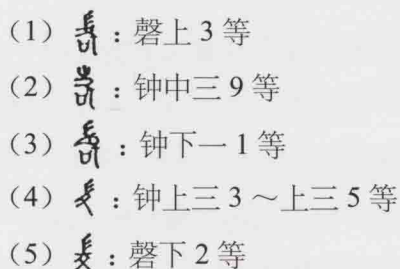 （1） ：磬上 3 等
（2） ：钟中三 9 等
（3） ：钟下一 1 等
（4） ：钟上三 3 ～上三 5 等
（5） ：磬下 2 等